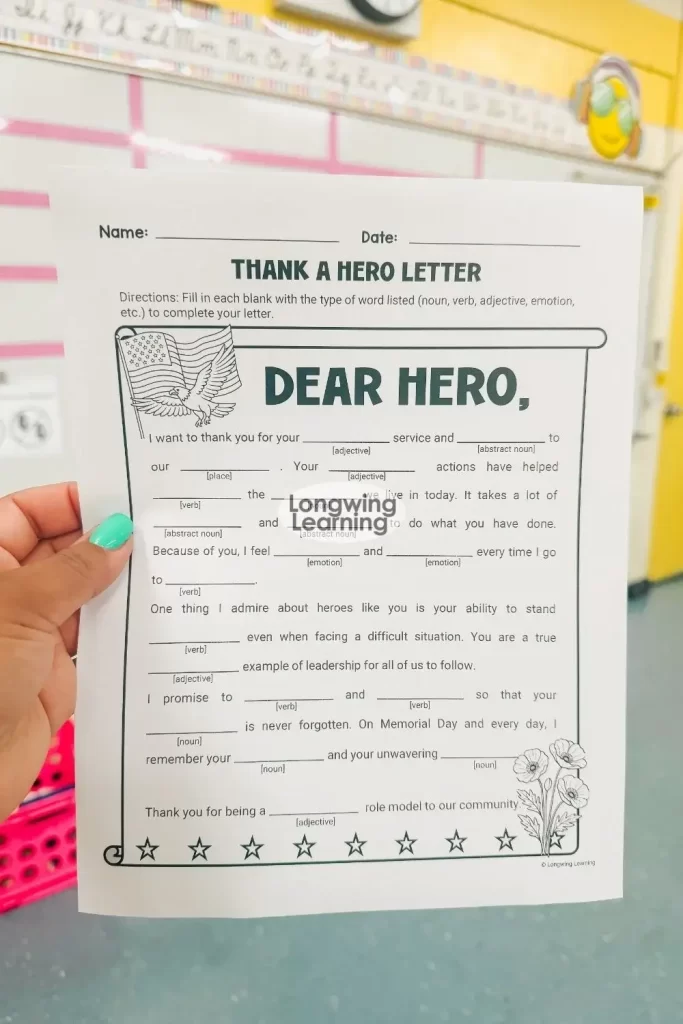 Ii Jj Kk Ll Mm Nn Oo Pp Qq Rr
Name: ____________ Date: ____________
THANK A HERO LETTER
Directions: Fill in each blank with the type of word listed (noun, verb, adjective, emotion,
etc.) to complete your letter.
DEAR HERO,
I want to thank you for your ____________ service and ____________ to
[adjective] [abstract noun]
our ____________ . Your ____________ actions have helped
[place] [adjective]
____________ the ____________ we live in today. It takes a lot of
[verb]
Longwing
Learning
____________ and ____________ to do what you have done.
[abstract noun] [abstract noun]
Because of you, I feel ____________ and ____________ every time I go
[emotion] [emotion]
to ____________.
[verb]
One thing I admire about heroes like you is your ability to stand
____________ even when facing a difficult situation. You are a true
[verb]
____________ example of leadership for all of us to follow.
[adjective]
I promise to ____________ and ____________ so that your
[verb] [verb]
____________ is never forgotten. On Memorial Day and every day, I
[noun]
remember your ____________ and your unwavering ____________
[noun] [noun]
Thank you for being a ____________ role model to our community
[adjective]
© Longwing Learning